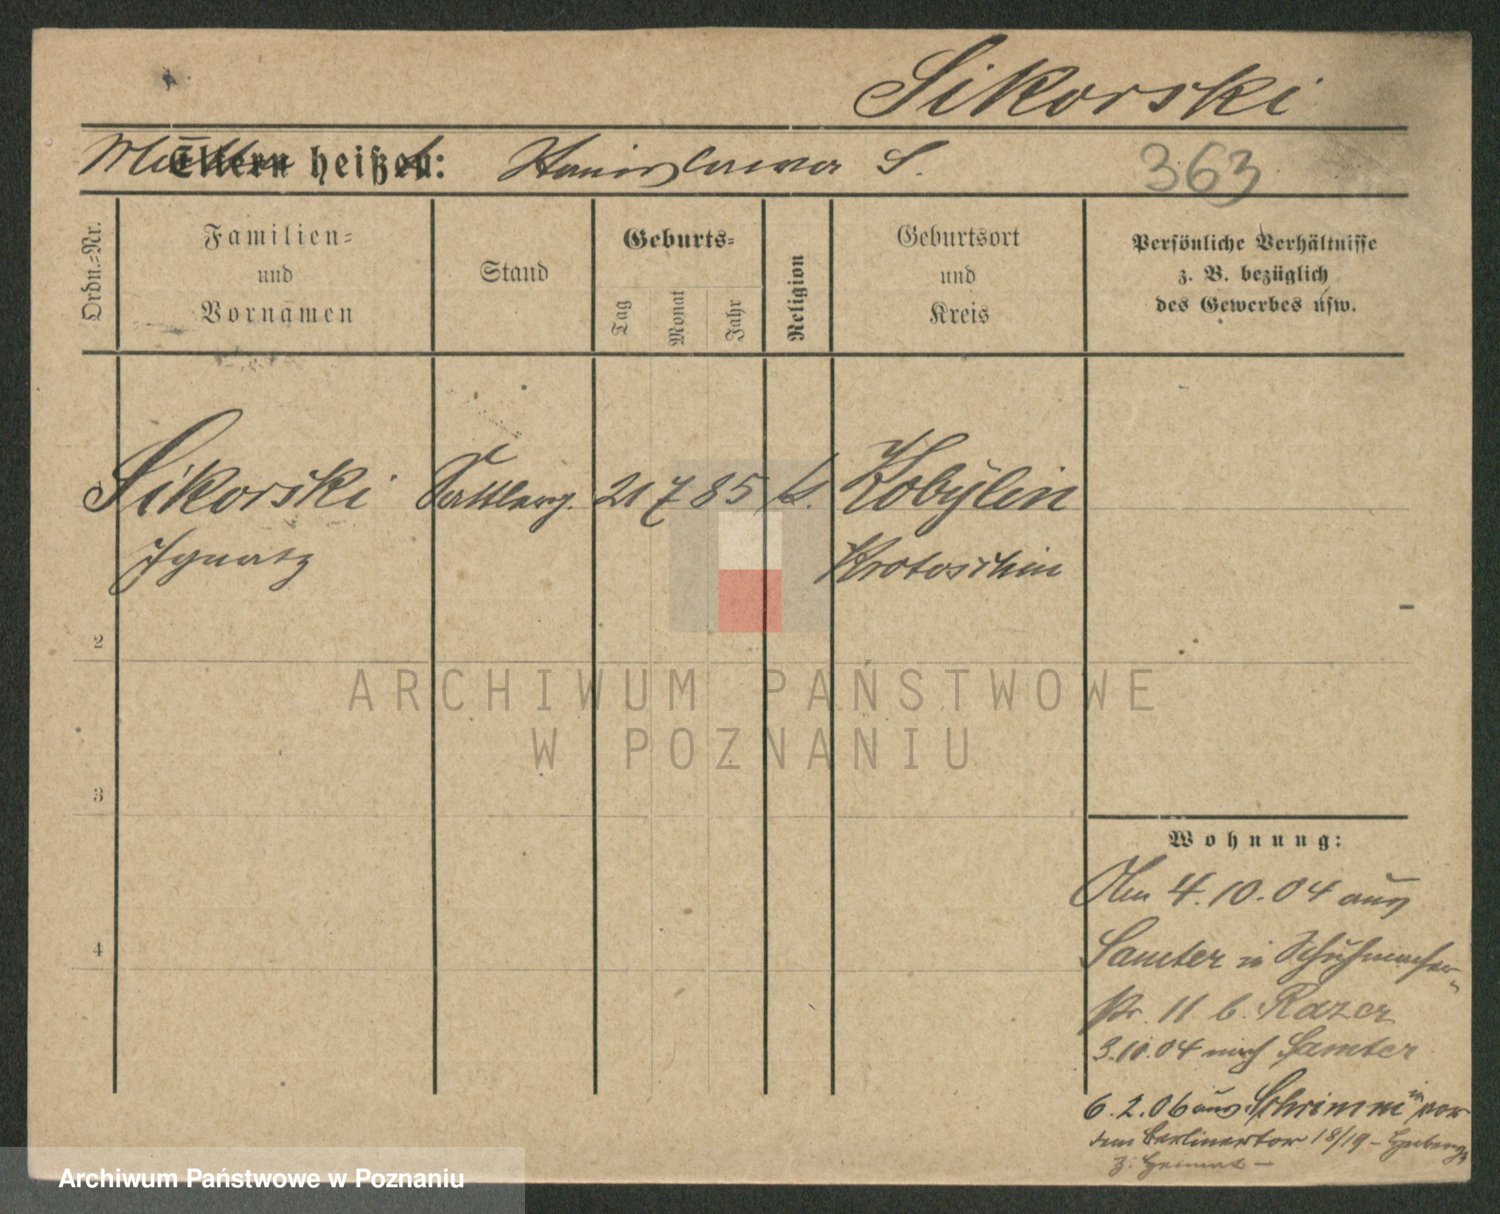 Sikorski
Mutter heißt: Stanislawa S.
363
Ordn.-Nr.
Familien-
und
Vornamen
Stand
Geburts-
Tag
Monat
Jahr
Religion
Geburtsort
und
Kreis
Persönliche Verhältnisse
z. B. bezüglich
des Gewerbes usw.
Sikorski Sattlerg. 21 7 85 k. Kobylin
Ignatz Krotoschin
2
3
4
Wohnung:
Am 4.10.04 aus
Samter in Schuhmacher-
str. 11 b. Razer
3.10.04 nach Samter
6.2.06 aus Schrimm in vor
dem Berlinertor 18/19 -
z. Heimat -
ARCHIWUM PAŃSTWOWE
W POZNANIU
Archiwum Państwowe w Poznaniu